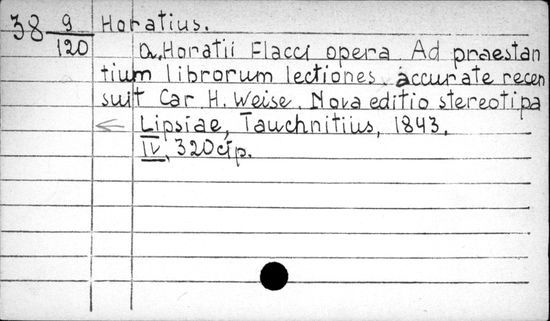 38 9/120 Horatius.
Q. Horatii Flacci opera Ad praestan
tium librorum lectiones accurate recen
suit Car. H. Weise. Nova editio stereotipa
Lipsiae, Tauchnitius, 1843.
IV, 320 стр.